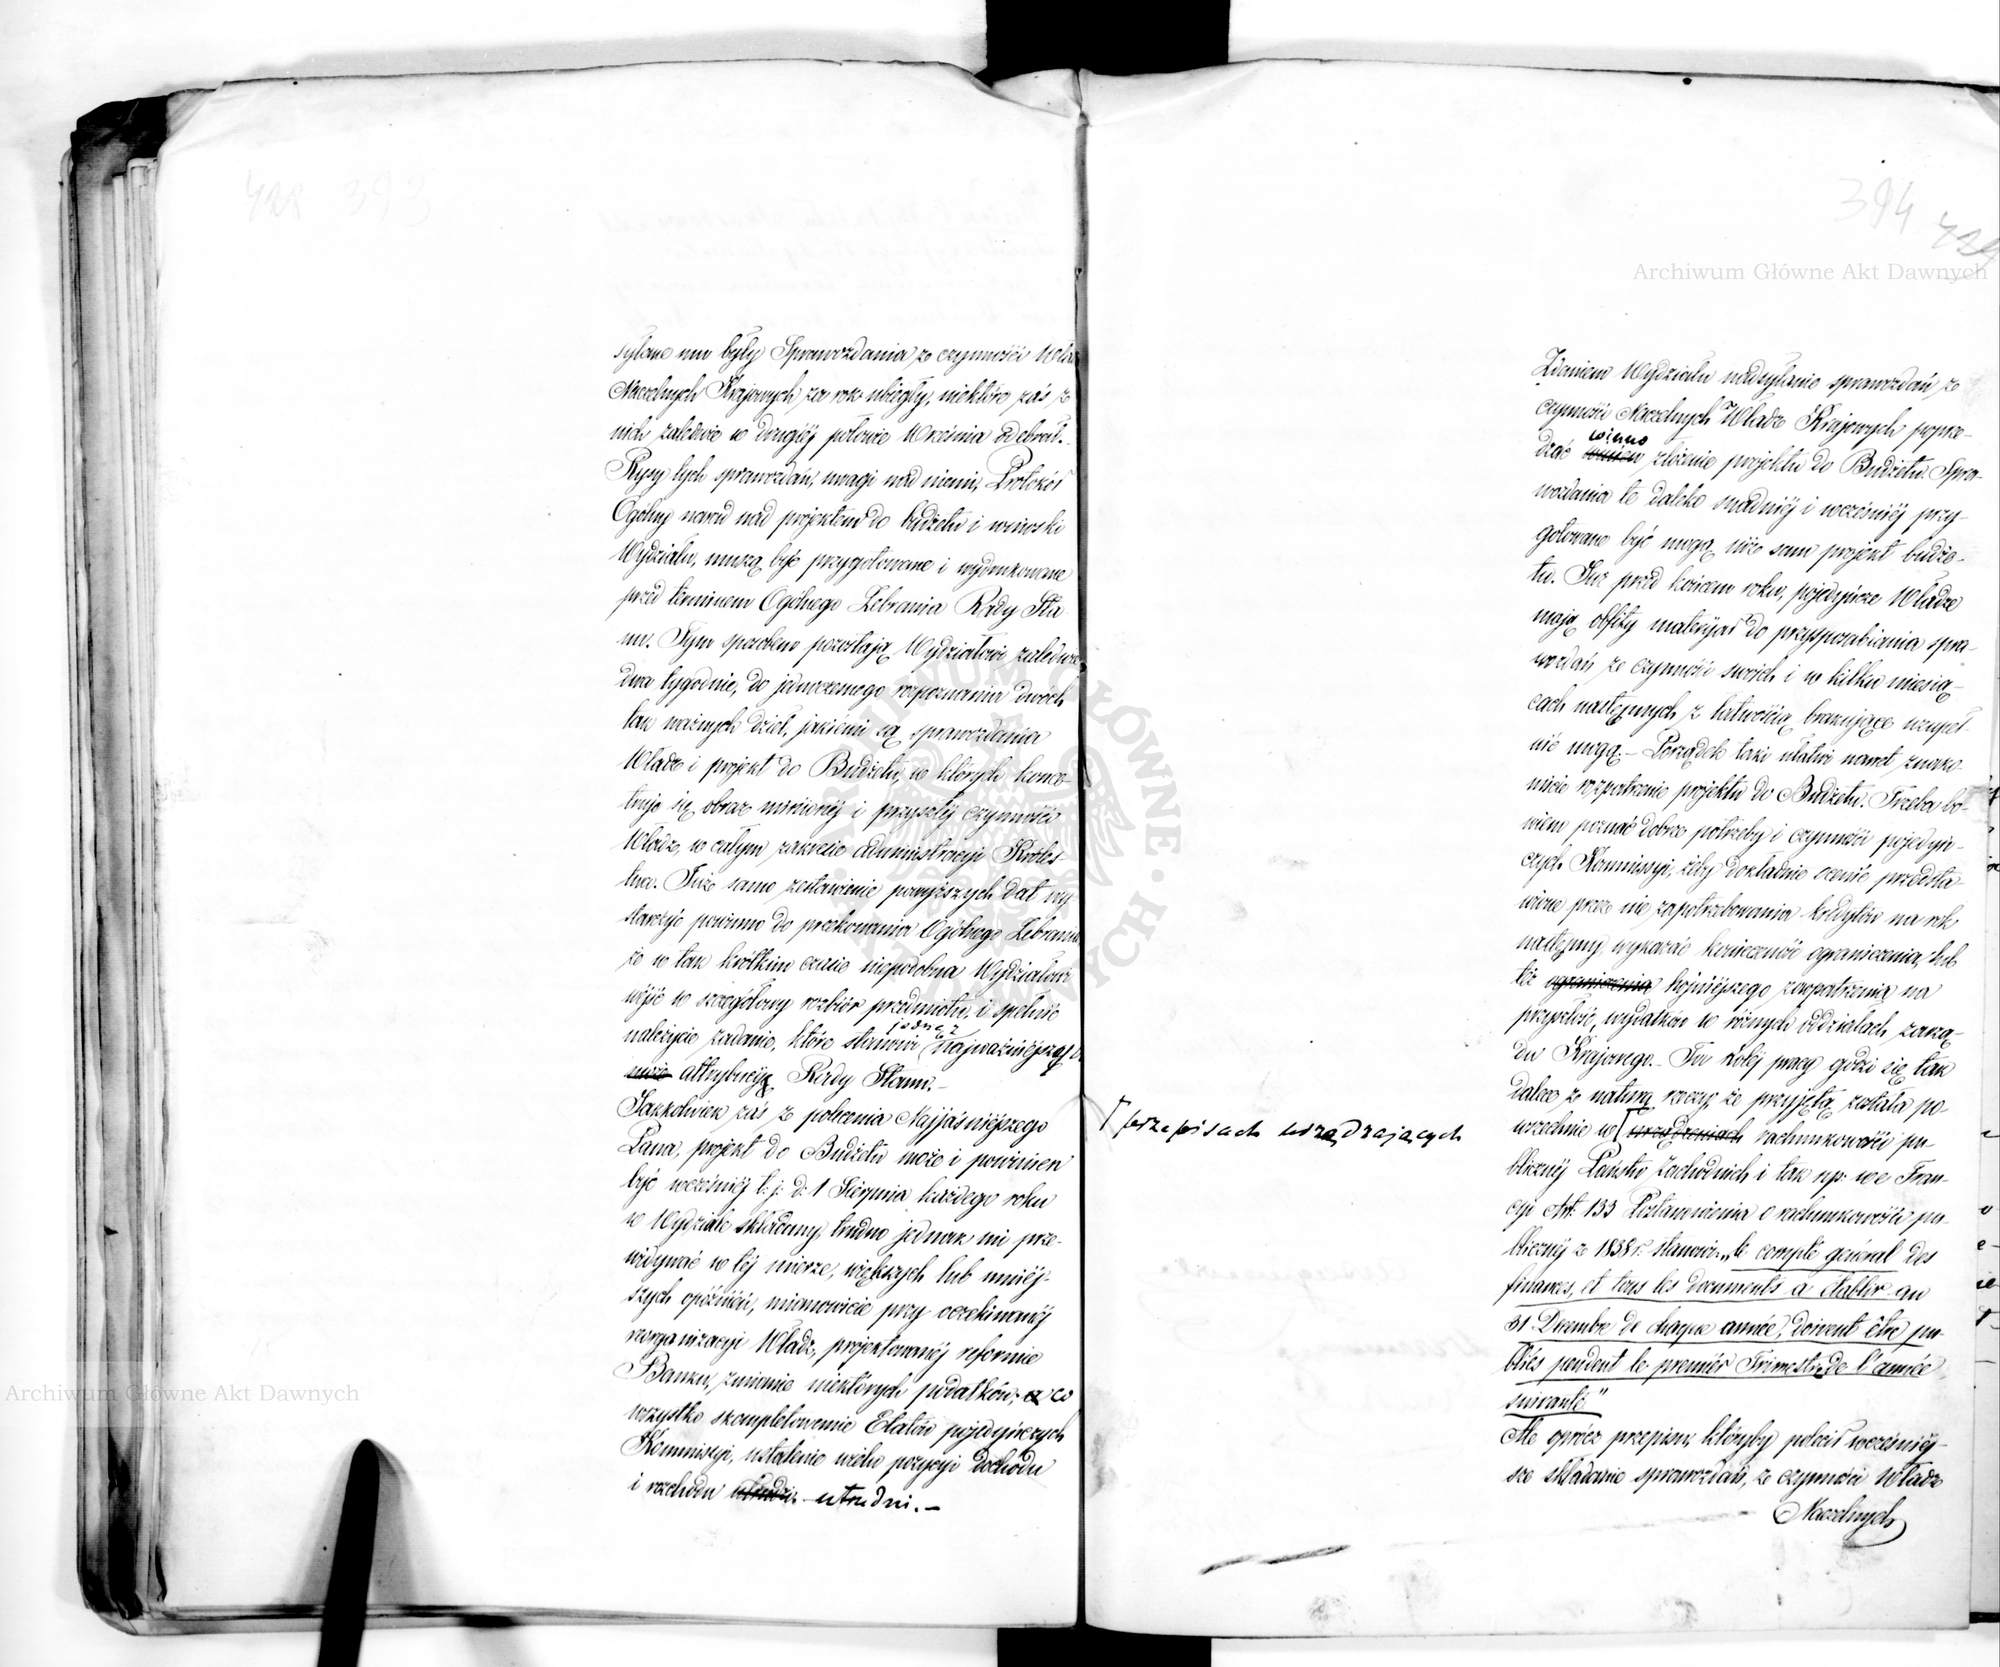 428 393
syłane mu były Sprawozdania ze czynności Władz
Naczelnych Krajowych za rok ubiegły, niektóre zaś z
nich zaledwie w drugiéj połowie Września odebrał.
Rysy tych sprawozdań, uwagi nad niemi, Protokół
Ogólny narad nad projektem do budżetu i wnioski
Wydziału, muszą być przygotowane i wydrukowane
przed terminem Ogólnego Zebrania Rady Sta
nu. Tym sposobem pozostają Wydziałowi zaledwie
dwa tygodnie, do jednoczesnego rozpoznania dwóch
tak ważnych dzieł, jakiemi są sprawozdania
Władz i projekt do Budżetu, w których koncen
truje się obraz minionéj i przyszłéj czynności
Władz, w całym zakresie administracyi Króles
twa. Już samo zestawienie powyższych dat wy
starczyć powinno do przekonania Ogólnego Zebrania
że w tak krótkim czasie niepodobna Wydziałowi
wejść w szczegółowy rozbiór przedmiotu, i spełnić
jedną z
należycie zadanie, które stanowi najważniejszą
może attrybucyą Rady Stanu.–
Jakkolwiek zaś z polecenia Najjaśniejszego
Pana, projekt do Budżetu może i powinien
być wcześniéj t: j: d: 1 Sierpnia każdego roku
w Wydziale składany, trudno jednak nie prze-
widywać w téj mierze, większych lub mniéj-
szych opóźnień, mianowicie przy oczekiwanéj
reorganizacyi Władz, projektowanéj reformie
Banku, zmianie niektórych podatków, co
wszystko skompletowanie Etatów pojedyńczych
Kommissyi, ustalenie wielu pozycyi dochodu
i rozchodu utrudni.–
394
429
Archiwum Główne Akt Dawnych
Zdaniem Wydziału nadsyłanie sprawozdań ze
czynności Naczelnych Władz Krajowych poprze-
winno
dzać złożenie projektu do Budżetu. Spra-
wozdania te daleko snadniéj i wcześniéj przy-
gotowane być mogą niże sam projekt budże-
tu. Już przed końcem roku, pojedyńcze Władze
mają obfity materyał do przysposabiania spra-
wozdań ze czynności swoich i w kilku miesią-
cach następnych z łatwością brakujące uzupeł-
nić mogą.– Porządek taki ułatwi nawet znako-
micie rozpatrzenie projektu do Budżetu. Trzeba bo-
wiem poznać dobrze potrzeby i czynności pojedyń-
czych Kommissyi, żeby dokładnie ocenić przedsta-
wione przez nie zapotrzebowania kredytów na rok
następny, wykazać konieczność ograniczenia, lub
téż ograniczenia hojniejszego zaopatrzenia na
przyszłość, wydatków w różnych oddziałach zarzą-
du Krajowego.– Ta koléj pracy godzi się tak
dalece z naturą rzeczy, że przyjętą została po-
wszechnie w urządzeniach rachunkowości pu-
przepisach urządzających
blicznéj Państw Zachodnich i tak np: we Fran-
cyi Art: 133 Postanowienia o rachunkowości pu-
blicznéj z 1838 r. stanowi: „le compte général des
finances, et tous les documents à établir au
31 Decembre de chaque année, doivent être pu-
bliés pendent le premiér Trimestre de l'année
suivante."
Ale oprócz przepisu, któryby polecił wcześniéj-
sze składanie sprawozdań, ze czynności Władz
Naczelnych
Archiwum Główne Akt Dawnych
ARCHIWUM GŁÓWNE AKT DAWNYCH